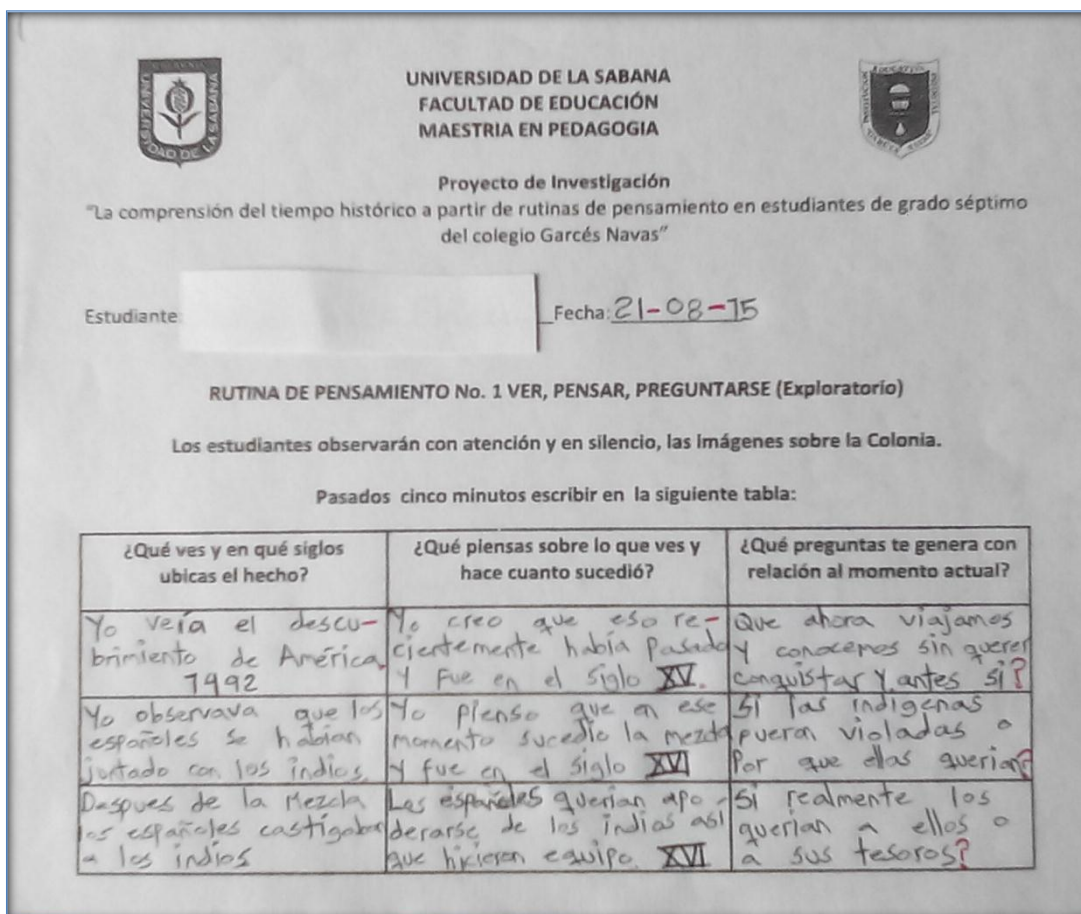 UNIVERSIDAD DE LA SABANA
FACULTAD DE EDUCACIÓN
MAESTRIA EN PEDAGOGIA
UNIVERSIDAD DE LA SABANA
Proyecto de Investigación
"La comprensión del tiempo histórico a partir de rutinas de pensamiento en estudiantes de grado séptimo
del colegio Garcés Navas"
Estudiante:
Fecha: 21-08-15
RUTINA DE PENSAMIENTO No. 1 VER, PENSAR, PREGUNTARSE (Exploratorio)
Los estudiantes observarán con atención y en silencio, las imágenes sobre la Colonia.
Pasados cinco minutos escribir en la siguiente tabla:
¿Qué ves y en qué siglos
ubicas el hecho?
¿Qué piensas sobre lo que ves y
hace cuanto sucedió?
¿Qué preguntas te genera con
relación al momento actual?
Yo veía el descu-
brimiento de América
1992
Yo creo que eso re-
cientemente había pasado
y fue en el siglo XV.
Que ahora viajamos
y conocemos sin querer
conquistar y antes si?
Yo observava que los
españoles se habian
juntado con los indios.
Yo pienso que en ese
momento sucedio la mezcla
y fue en el siglo XVI
Si las indigenas
pueron violadas o
Por que ellas querian?
Despues de la Mezcla
los españoles castigaban
a los indios
Los españoles querian apo-
derarse de los indias asi
que hicieron equipo. XVI
Si realmente los
querian a ellos o
a sus tesoros?